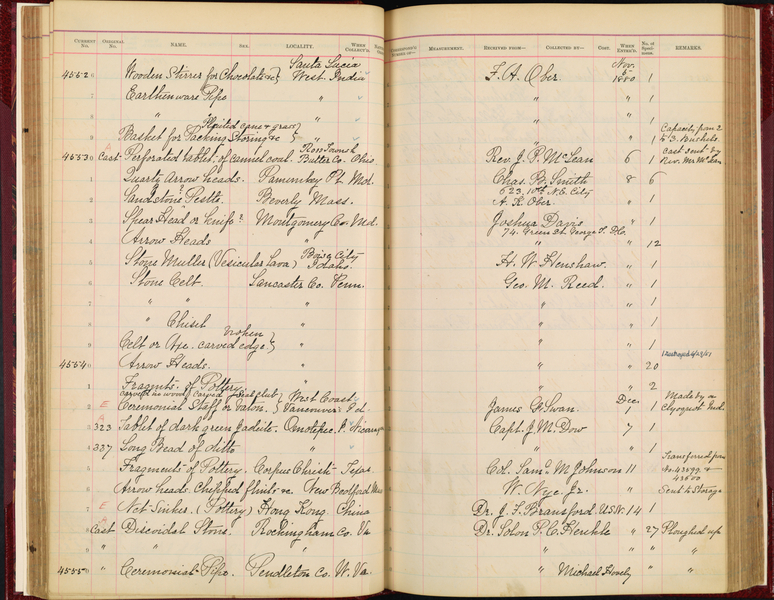 CURRENT No. ORIGINAL No. NAME. SEX. LOCALITY. WHEN COLLECT'D. MEASUREMENT. RECEIVED FROM— COLLECTED BY— COST. WHEN ENTER'D. No. of Speci-mens. REMARKS.
45526 Wooden Stirrer for Chocolate &c } Santa Lucia West Indies F. A. Ober. Nov. 5 1880 1
7 Earthenware Pipe " " " 1
8 " " " " " 1
9 Basket for Packing Storing &c } Plaited cane & grass " " " 1 Capacity from 2 to 3 Bushels.
45530 Cast Perforated tablet of cannel coal. Ross Townsh Butler Co. Ohio Rev. J. P. McLean 6 1 Cast sent by Rev. Mr McLean
1 Quartz Arrow heads. Pamunkey Pt. Md. Chas. B. Smith 8 6
623. 10th N.E. City
2 Sandstone Pestle. ? Beverly Mass. A. K. Ober. " 1
3 Spear Head or Knife? Montgomery Co. Md. Joshua Davis " 1
74. Green St. George T. D.C.
4 Arrow Heads " " " 12
5 Stone Muller (Vesicular Lava) Boise City Idaho. H. W. Henshaw. " 1
6 Stone Celt. Lancaster Co. Penn. Geo. M. Reed. " 1
7 " " " " " 1
8 " Chisel " " " 1
9 Celt or Axe. broken carved edge } " " " 1
45540 Arrow Heads. " " " 20
1 Fragmts. of Pottery. " " " 2
2 E Ceremonial Staff or Baton. } West Coast Vancouver's Id. James G. Swan. Dec. 1 1 Made by a Clyoquot Ind.
3 323 Tablet of dark green Jadeite. Ometepec. Nicaragua Capt. J. M. Dow 7 1
4 337 Long Bead of ditto " " " 1
5 Fragments of Pottery. Corpus Christi Texas Col. Saml. M Johnson 11 Transferred from No. 43599 & 43600
6 Arrow heads. Chipped flints &c. New Bedford Mass W. Nye Jr. " Sent to Storage
7 E Net-Sinker. (Pottery) Hong Kong. China Dr. J. F. Bransford U.S.N. 14 1
8 Cast Discoidal Stone. Rockingham Co. Va Dr. Solon P. C. Henkle " 27 Ploughed up
9 " " " " " " "
45550 " Ceremonial Pipe. Pendleton Co. W. Va. " Michael Hovely " "